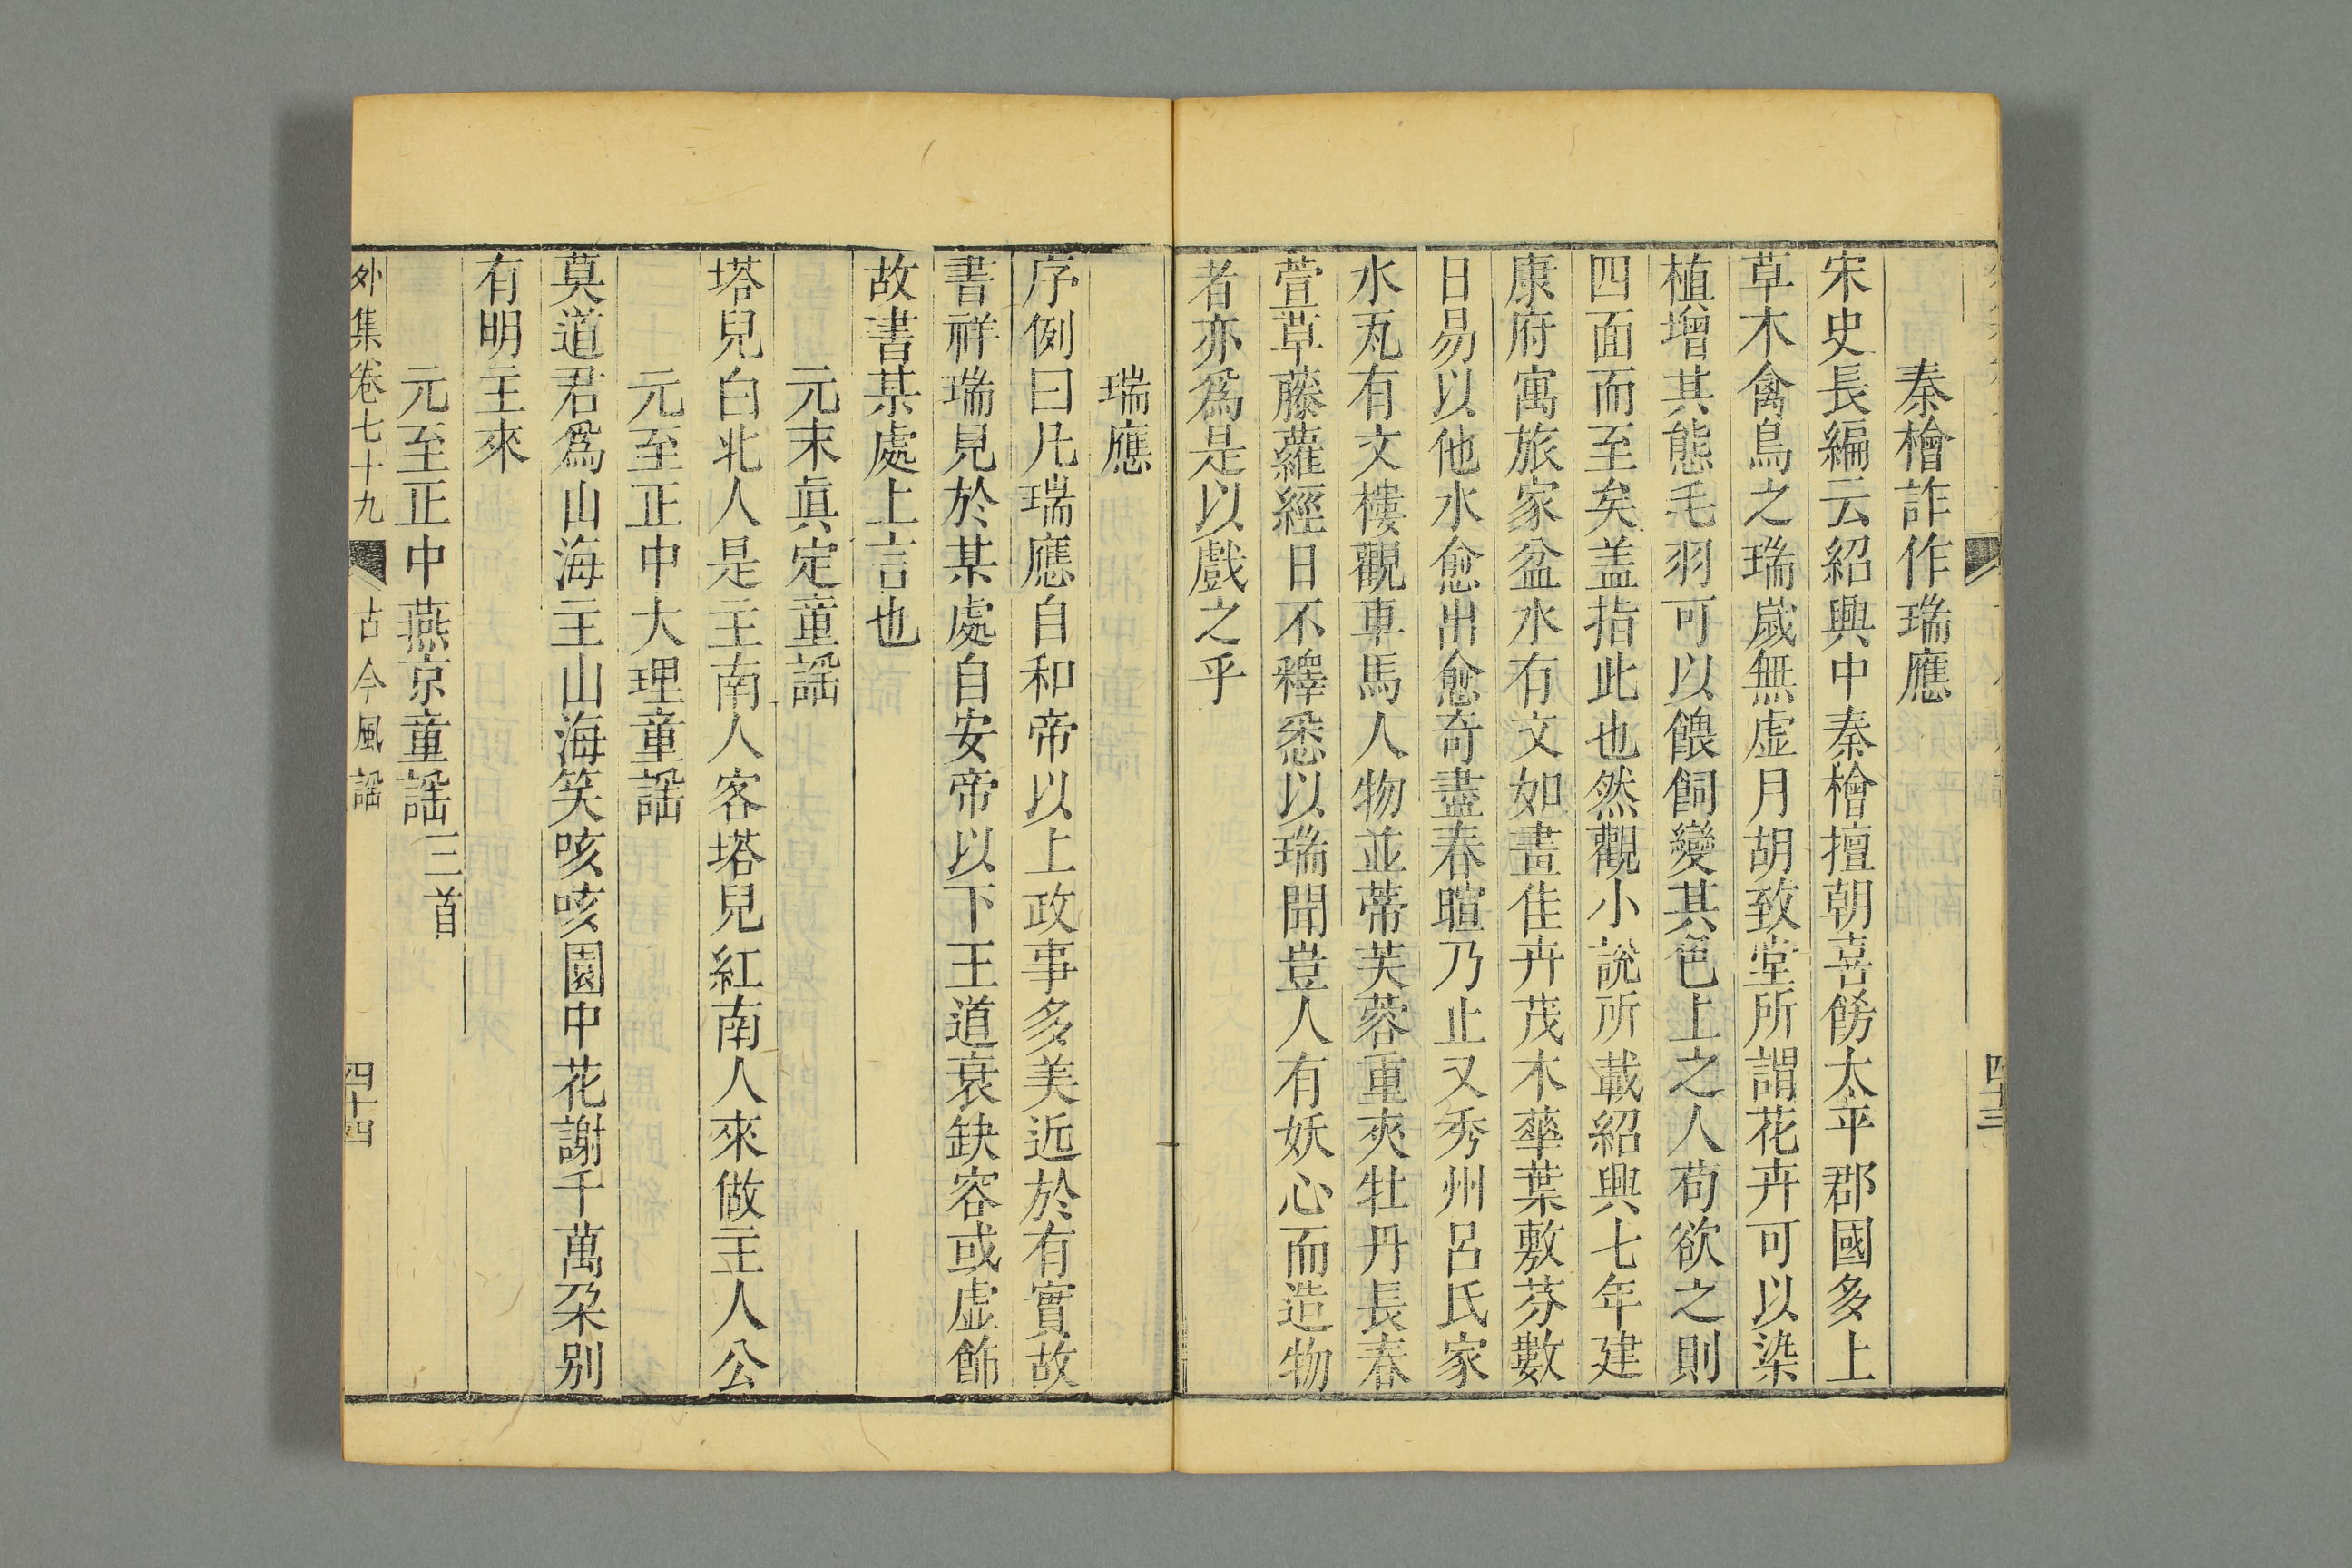 四十三
秦檜詐作瑞應
宋史長編云紹興中秦檜擅朝喜餝太平郡國多上
草木禽鳥之瑞歲無虛月胡致堂所謂花卉可以染
植增其態毛羽可以餵飼變其色上之人苟欲之則
四面而至矣盖指此也然觀小說所載紹興七年建
康府寓旅家盆水有文如畫佳卉茂木蕐葉敷芬數
日易以他水愈出愈奇盡春暄乃止又秀州呂氏家
水瓦有文樓觀車馬人物並蒂芙蓉重夾牡丹長春
萱草藤蘿經日不釋悉以瑞聞豈人有妖心而造物
者亦爲是以戲之乎
瑞應
序例曰凡瑞應自和帝以上政事多美近於有實故
書祥瑞見於某處自安帝以下王道衰缺容或虛飾
故書某處上言也
元末眞定童謡
塔兒白北人是主南人客塔兒紅南人來做主人公
元至正中大理童謡
莫道君爲山海主山海笑咳咳園中花謝千萬朶别
有明主來
元至正中燕京童謡三首
外集卷七十九 古今風謡 四十四